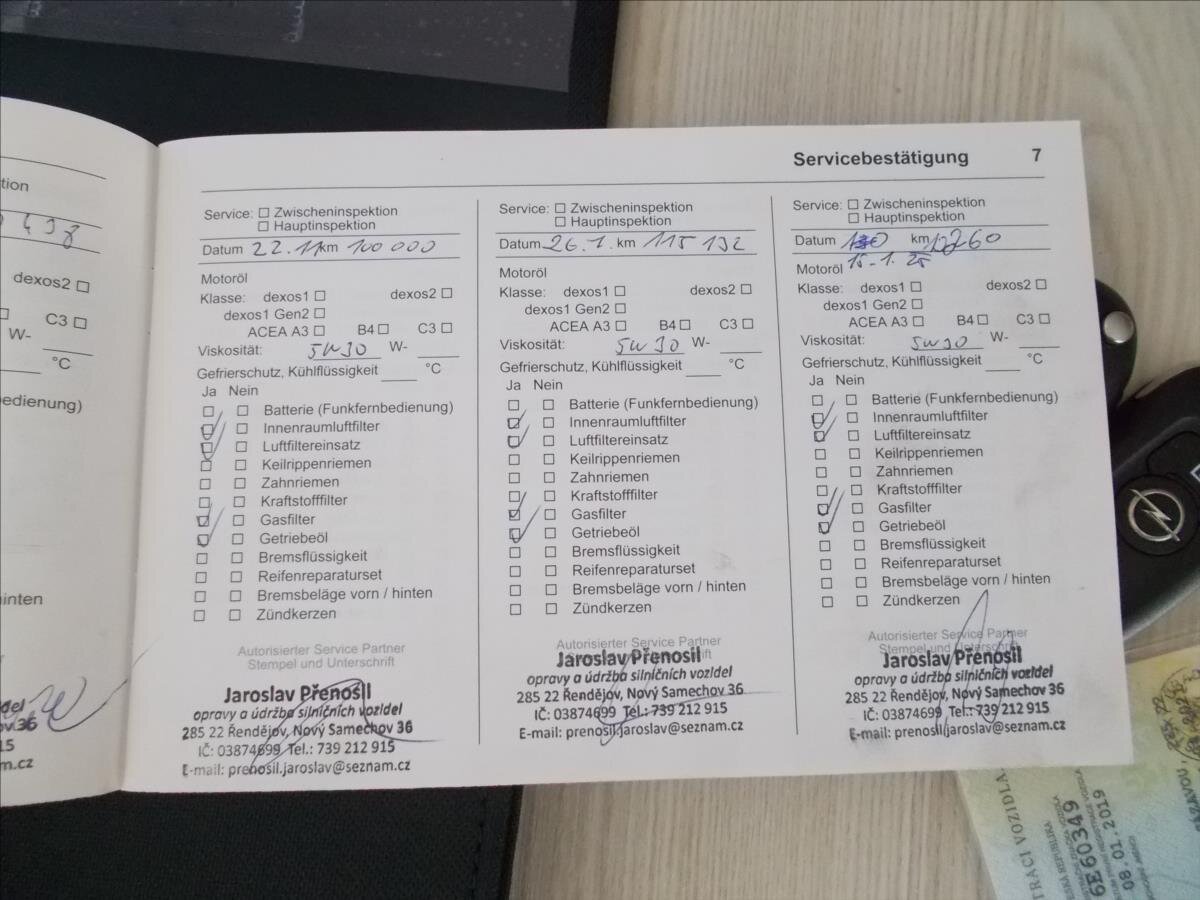 tion
0 498
dexos2
C3
W-
°C
edienung)
inten
Servicebestätigung 7
Service: Zwischeninspektion
Hauptinspektion
Datum 22.11 km 100 000
Motoröl
Klasse: dexos1 dexos2
dexos1 Gen2
ACEA A3 B4 C3
Viskosität: 5W30 W-
Gefrierschutz, Kühlflüssigkeit °C
Ja Nein
Batterie (Funkfernbedienung)
Innenraumluftfilter
Luftfiltereinsatz
Keilrippenriemen
Zahnriemen
Kraftstofffilter
Gasfilter
Getriebeöl
Bremsflüssigkeit
Reifenreparaturset
Bremsbeläge vorn / hinten
Zündkerzen
Autorisierter Service Partner
Stempel und Unterschrift
Jaroslav Přenosil
opravy a údržba silničních vozidel
285 22 Řendějov, Nový Samechov 36
IČ: 03874699 Tel.: 739 212 915
E-mail: prenosil.jaroslav@seznam.cz
Service: Zwischeninspektion
Hauptinspektion
Datum 26.1. km 115 132
Motoröl
Klasse: dexos1 dexos2
dexos1 Gen2
ACEA A3 B4 C3
Viskosität: 5W30 W-
Gefrierschutz, Kühlflüssigkeit °C
Ja Nein
Batterie (Funkfernbedienung)
Innenraumluftfilter
Luftfiltereinsatz
Keilrippenriemen
Zahnriemen
Kraftstofffilter
Gasfilter
Getriebeöl
Bremsflüssigkeit
Reifenreparaturset
Bremsbeläge vorn / hinten
Zündkerzen
Autorisierter Service Partner
Stempel und Unterschrift
Jaroslav Přenosil
opravy a údržba silničních vozidel
285 22 Řendějov, Nový Samechov 36
IČ: 03874699 Tel.: 739 212 915
E-mail: prenosil.jaroslav@seznam.cz
Service: Zwischeninspektion
Hauptinspektion
Datum km
15.1.25
Motoröl
Klasse: dexos1 dexos2
dexos1 Gen2
ACEA A3 B4 C3
Viskosität: 5W30 W-
Gefrierschutz, Kühlflüssigkeit °C
Ja Nein
Batterie (Funkfernbedienung)
Innenraumluftfilter
Luftfiltereinsatz
Keilrippenriemen
Zahnriemen
Kraftstofffilter
Gasfilter
Getriebeöl
Bremsflüssigkeit
Reifenreparaturset
Bremsbeläge vorn / hinten
Zündkerzen
Autorisierter Service Partner
Stempel und Unterschrift
Jaroslav Přenosil
opravy a údržba silničních vozidel
285 22 Řendějov, Nový Samechov 36
IČ: 03874699 Tel.: 739 212 915
E-mail: prenosil.jaroslav@seznam.cz
TRACI VOZIDLA
6E60349
08.01.2019